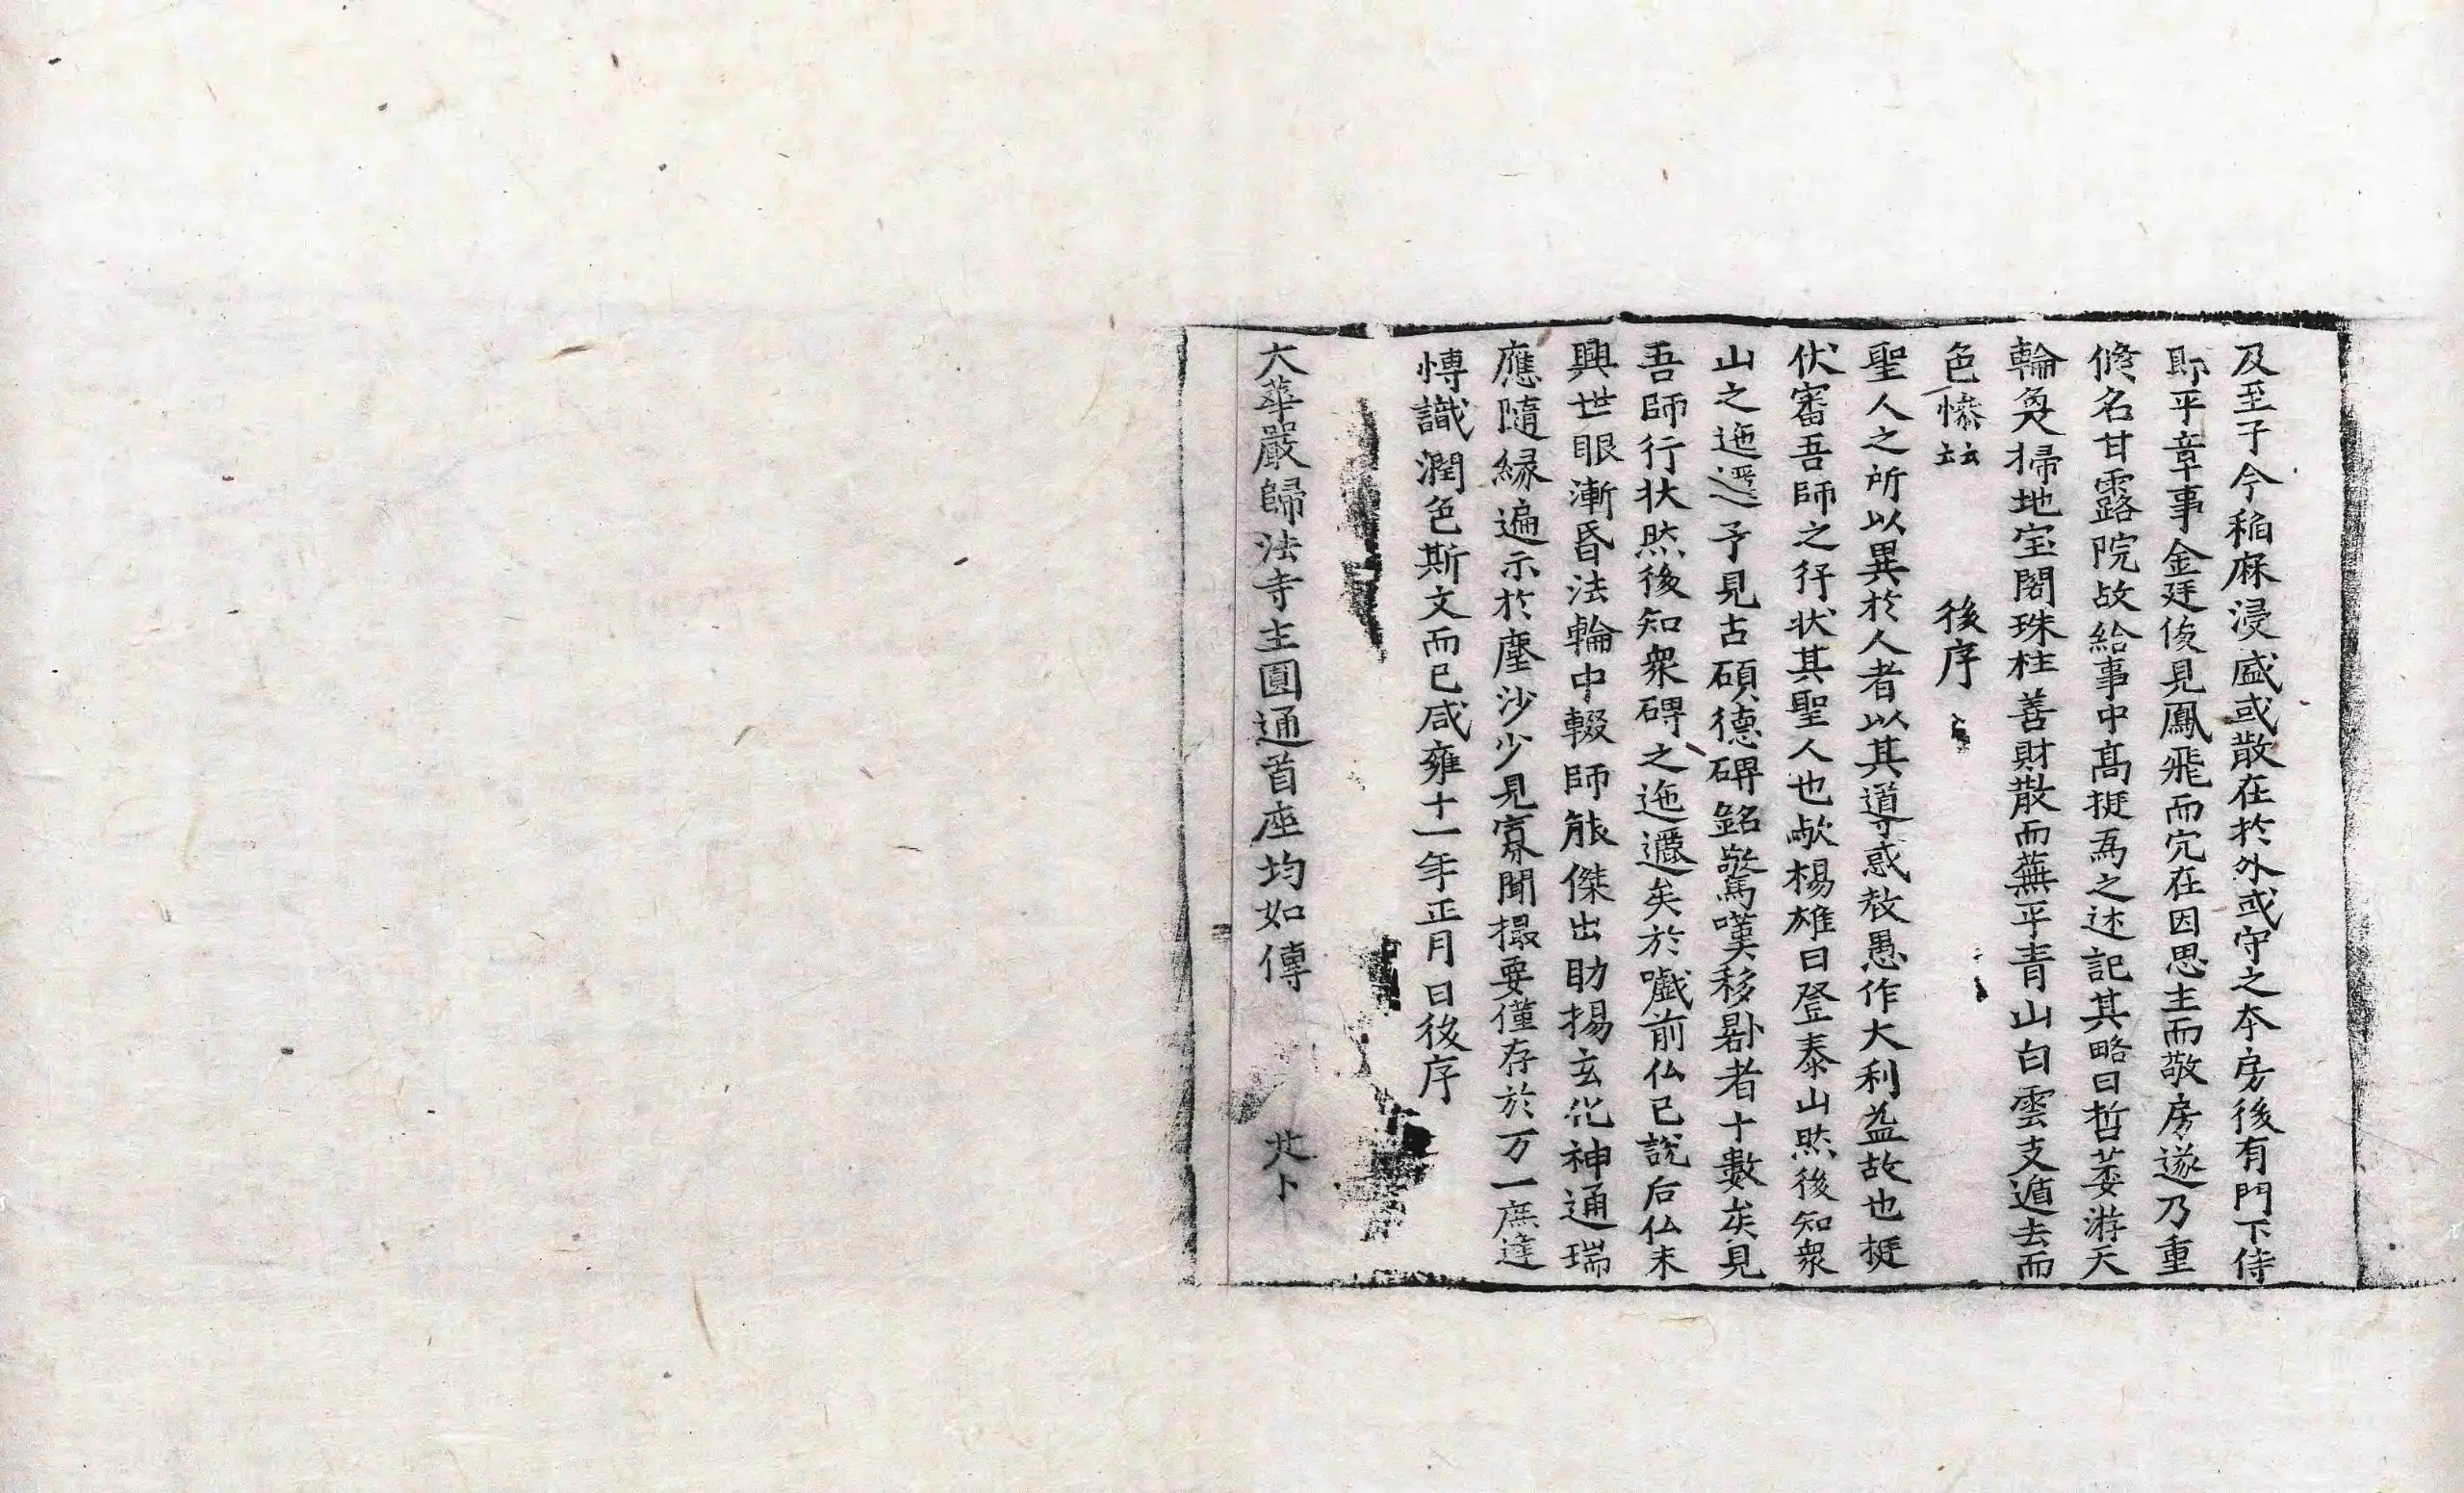 及至于今稻麻浸盛或散在於外或守之本房後有門下侍
郎平章事金廷俊見鳳飛而穴在因思主而敬房遂乃重
修名甘露院故給事中髙挺為之述記其略曰哲萎游天
輪奐掃地宝閣珠柱善財散而蕪平青山白雲支遁去而
色慘㘴 後序
聖人之所以異於人者以其噵惑教愚作大利益故也挺
伏審吾師之行状其聖人也歟楊雄曰登泰山然後知衆
山之迤邐予見古碩德碑銘驚嘆移晷者十數矣見
吾師行状然後知衆碑之迤邐矣於戲前仏已說后仏未
興世眼漸昏法輪中輟師能傑出助揚玄化神通瑞
應隨緣遍示於塵沙少見寡聞撮要僅存於万一庶逢
愽識潤色斯文而已咸雍十一年正月日後序
大華嚴歸法寺主圎通首座均如傳